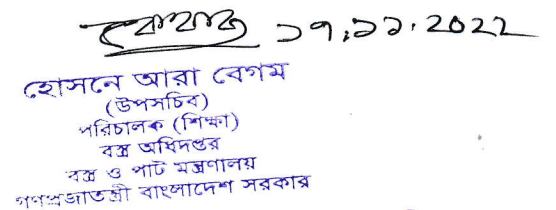 ১৭.১১.2022
হোসনে আরা বেগম
(উপসচিব)
পরিচালক (শিক্ষা)
বস্ত্র অধিদপ্তর
বস্ত্র ও পাট মন্ত্রণালয়
গণপ্রজাতন্ত্রী বাংলাদেশ সরকার